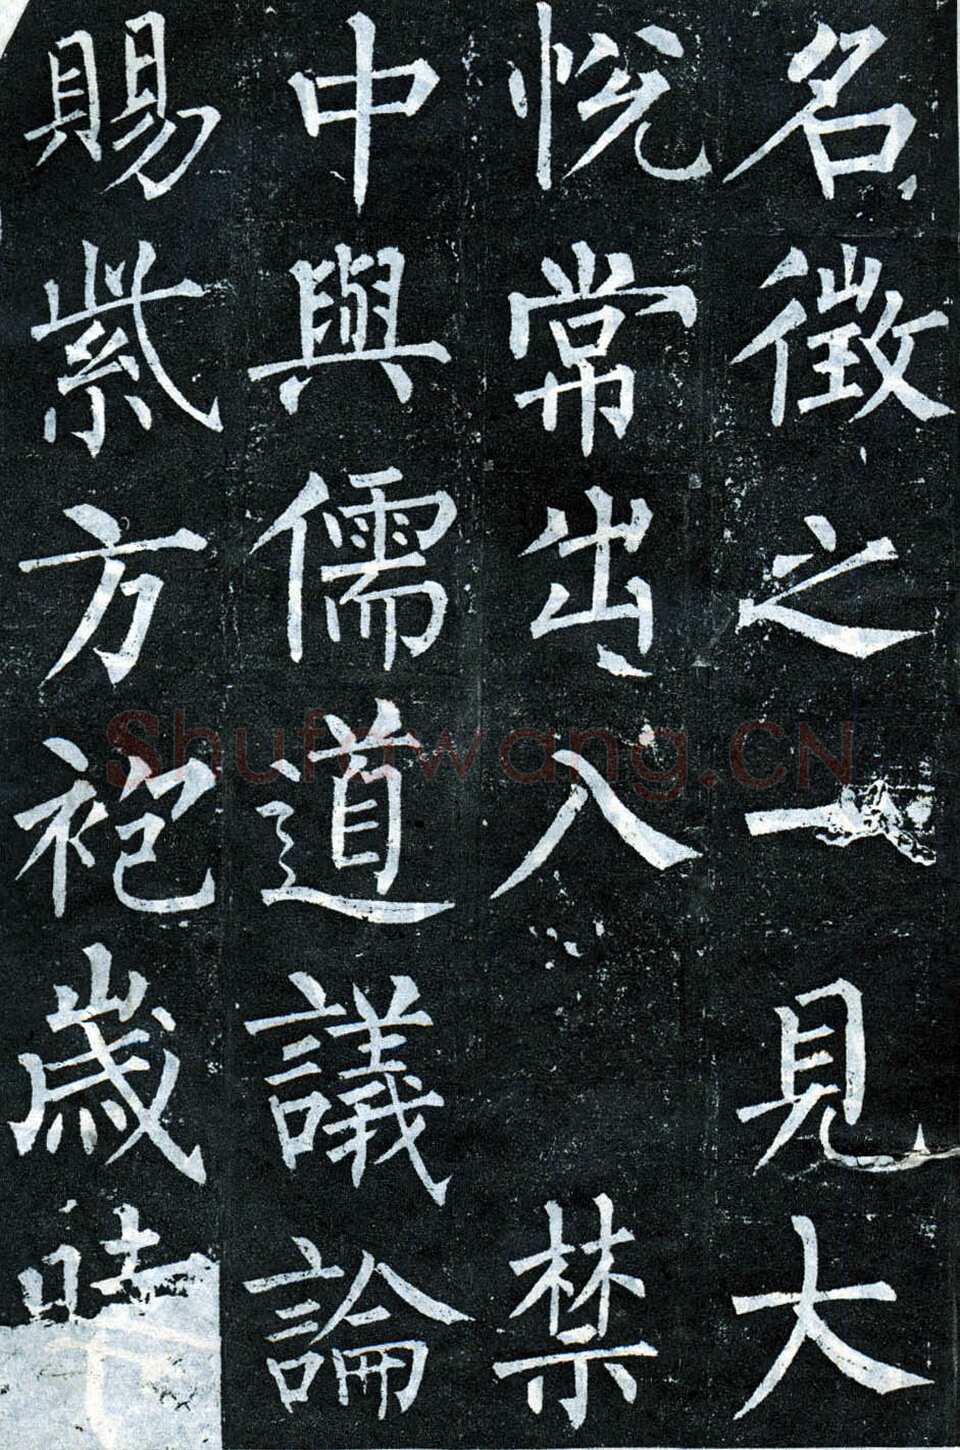 名徵之一見大
悅常出入禁
中與儒道議論
賜紫方袍歲時
Shufawang.CN